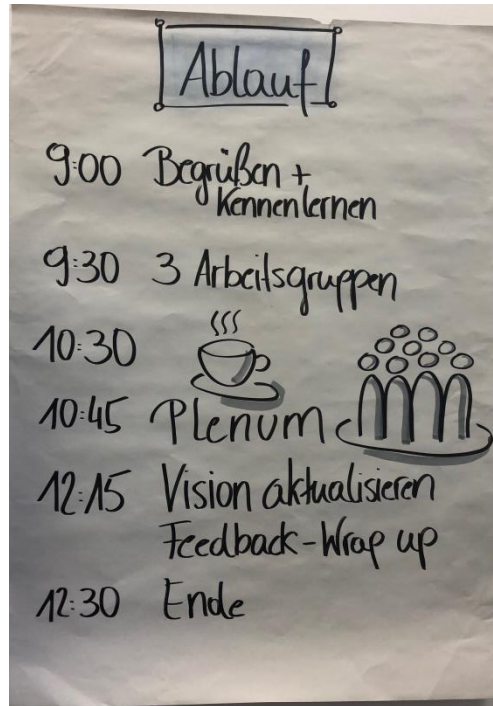 Ablauf
9:00 Begrüßen +
Kennenlernen
9:30 3 Arbeitsgruppen
10:30
10:45 Plenum
12:15 Vision aktualisieren
Feedback-Wrap up
12:30 Ende